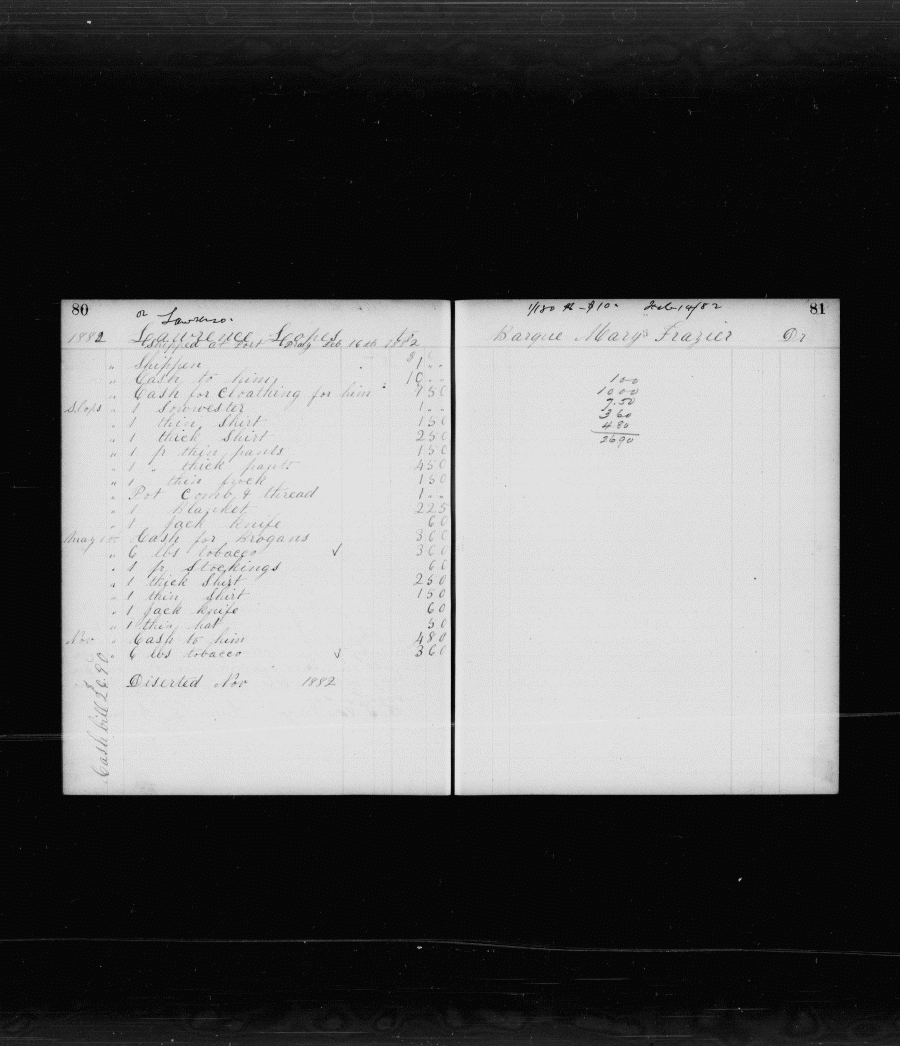 80
or Lawrenzo.
1882 Lawrence Lopes
Shipped at Port Praly Feb 16th 1882
" Shippen $1 " "
" Cash to him 10 " "
" Cash for Cloathing for him 7 50
Slops " 1 Souwester 1 " "
" 1 thin Shirt 1 50
" 1 thick Shirt 2 50
" 1 pr thin pants 1 50
" 1 " thick pants 4 50
" 1 thin frock 1 50
" Pot Comb & thread 1 " "
" 1 Blanket 2 25
" 1 jack knife 60
May Cash for Brogans 3 60
" 6 lbs tobacco √ 3 00
" 1 pr Stockings 60
" 1 thick Shirt 2 50
" 1 thin Shirt 1 50
" 1 jack knife 60
" 1 thin hat 50
Nov " Cash to him 4 80
" 6 lbs tobacco √ 3 60
Diserted Nov 1882
Cash bill 26.90
1/180 $10. Feb 14/82
81
Barque Mary Frazier Dr
100
1000
7.50
360
480
2690